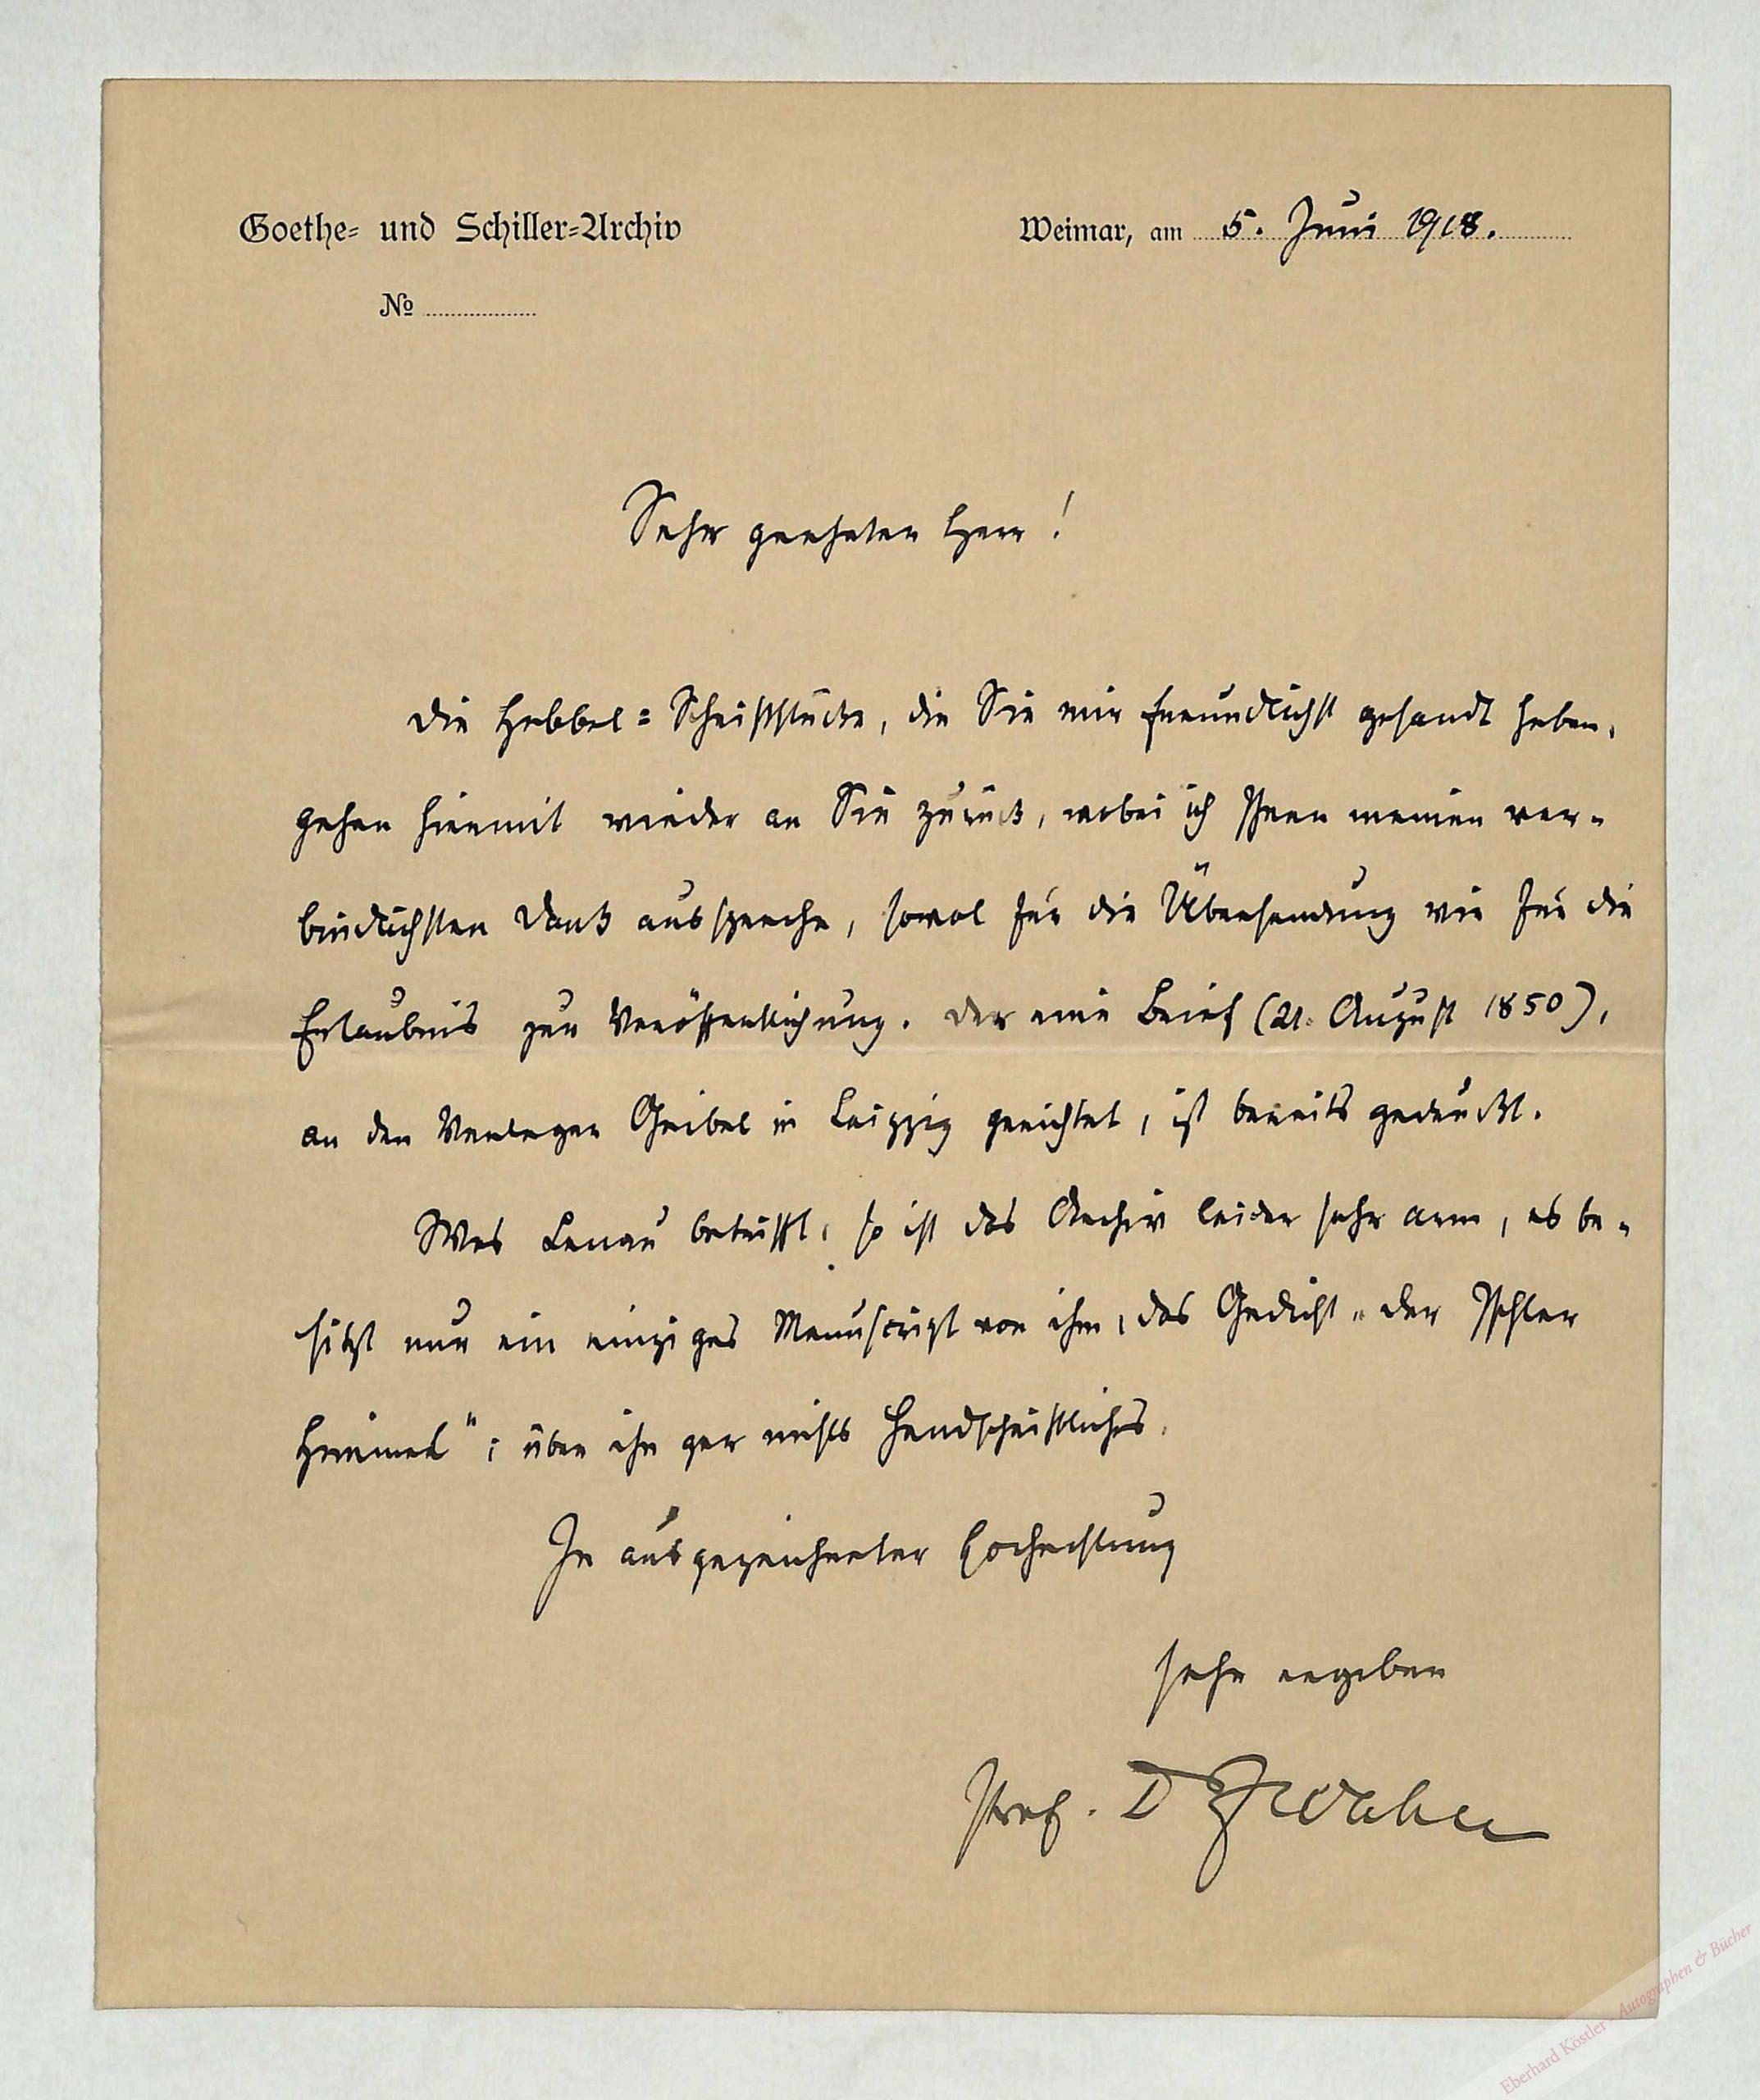 Goethe- und Schiller-Archiv
Weimar, am 5. Juni 1918.
No
Sehr geehrter Herr!
Die Hebbel-Schriftstücke, die Sie mir freundlichst gesandt haben,
gehen hiermit wieder an Sie zurück, wobei ich Ihnen meinen ver-
bindlichsten Dank ausspreche, sowol für die Übersendung wie für die
Erlaubnis zur Veröffentlichung. Der eine Brief (21. August 1850),
an den Verleger Geibel in Leipzig gerichtet, ist bereits gedruckt.
Was Lenau betrifft, so ist das Archiv leider sehr arm, es be-
sitzt nur ein einziges Manuscript von ihm, das Gedicht „Der Ischler
Himmel"; über ihn gar nichts Handschriftliches.
In ausgezeichneter Hochachtung
sehr ergeben
Prof. D Wahle
Eberhard Köstler - Autographen & Bücher